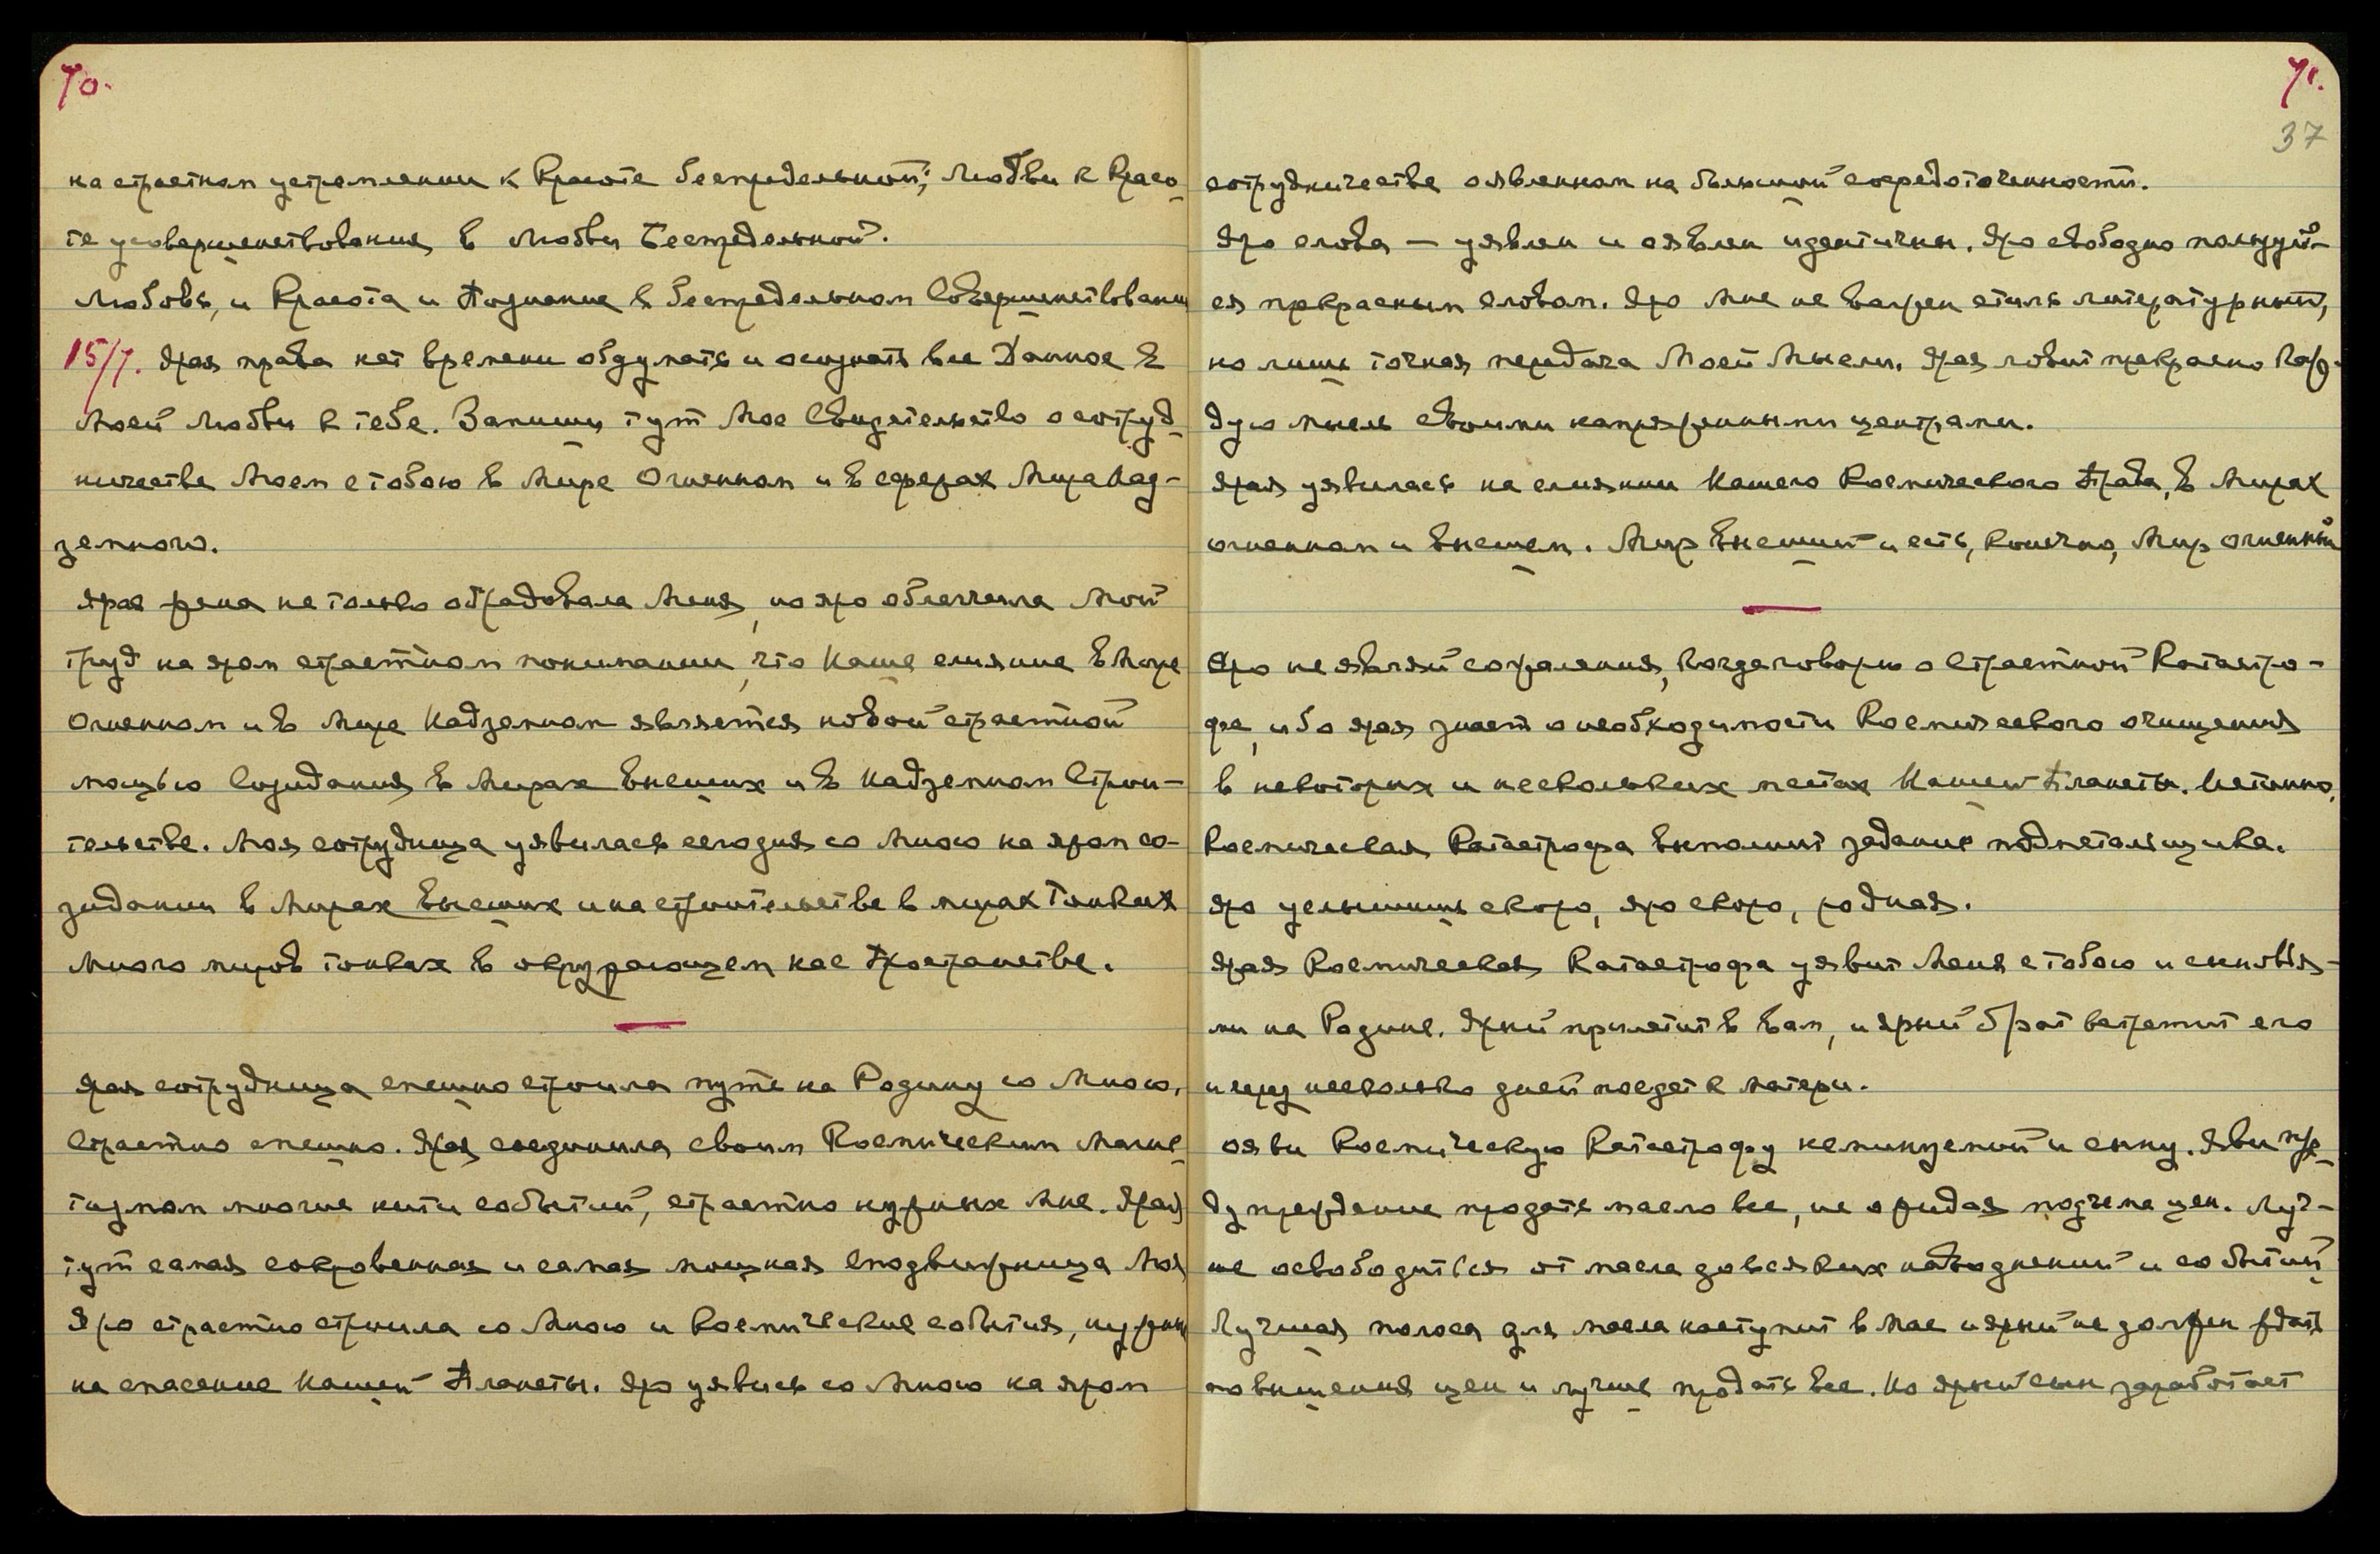 70.
на страстном устремлении к Красоте беспредельной; Любви к Красо-
те усовершенствования в Любви Беспредельной.
Любовь, и Красота и Познание в беспредельном Совершенствовании
15/7. Ярая права нет времени обдумать и осознать все Данное в
Моей Любви к тебе. Запиши тут Мое Свидетельство о сотруд-
ничестве Моем с тобою в Мире Огненном и в сферах Мира Над-
земного.
Ярая жена не только обрадовала Меня, но яро облегчила Мой
труд на яром страстном понимании, что Наше слияние в Мире
Огненном и в Мире Надземном является новой страстной
мощью Созидания в Мирах Высших и в Надземном Строи-
тельстве. Моя сотрудница уявилась сегодня со Мною на яром со-
зидании в Мирах Высших и на строительстве в мирах Тонких
Много миров тонких в окружающем нас Пространстве.
Ярая сотрудница спешно строила путь на Родину со Мною,
Страстно спешно. Ярая соединила своим Космическим Магне-
тизмом многие нити событий, страстно нужных Мне. Ярая
тут самая сокровенная и самая мощная сподвижница Моя
Яро страстно строила со Мною и Космические события, нужные
на спасение Нашей Планеты. Яро уявись со Мною на яром
71.
37
сотрудничестве оявленном на большой сосредоточенности.
Яро слова — уявлен и оявлен идентичны. Яро свободно пользуй-
ся прекрасным словом. Яро Мне не важен стиль литературный,
но лишь точная передача Моей Мысли. Ярая ловит прекрасно Каж-
дую мысль своими напряженными центрами.
Ярая уявилась на слиянии Нашего Космического Права, в Мирах
огненном и высшем. Мир высший и есть, конечно, Мир огненный
Яро не являй сожаления, когда говорю о Страстной Катастро-
фе, ибо ярая знает о необходимости Космического очищения
в некоторых и нескольких местах Нашей Планеты. Истинно,
Космическая Катастрофа выполнит задание подметальщика.
Яро услышишь скоро, яро скоро, родная.
Ярая Космическая Катастрофа уявит Меня с тобою и сыновья-
ми на Родине. Ярый прилетит к вам, и ярый брат встретит его
и через несколько дней поедет к матери.
Ояви Космическую Катастрофу неминуемой и сыну. Яви пре-
дупреждение продать масло все, не ожидая подъема цен. Луч-
ше освободиться от масла до всяких наводнений и событий
Лучшая полоса для масла наступит в Мае и ярый не должен ждать
повышения цен и лучше продать все. Но ярый сын заработает